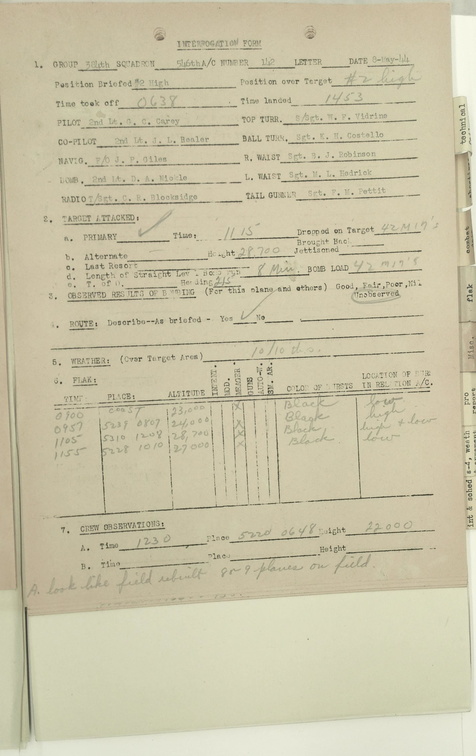 INTERROGATION FORM
1. GROUP 384th SQUADRON 546th A/C NUMBER 142 LETTER DATE 8-May-44
Position Briefed #2 High Position over Target #2 high
Time took off 0638 Time landed 1453
PILOT 2nd Lt. G. C. Carey TOP TURR. S/Sgt. W. F. Vidrine
CO-PILOT 2nd Lt. J. L. Bealer BALL TURR. Sgt. K. H. Costello
NAVIG. F/O J. P. Giles R. WAIST Sgt. B. J. Robinson
BOMB. 2nd Lt. D. A. Nickle L. WAIST Sgt. M. L. Hedrick
RADIO T/Sgt. C. E. Blocksidge TAIL GUNNER Sgt. F. M. Pettit
2. TARGET ATTACKED:
a. PRIMARY Time: 1115 Dropped on Target 42 M17's
Brought Back
b. Alternate Height 28,700 Jettisoned
c. Last Resort
d. Length of Straight Lev 8 Min. BOMB LOAD 42 M17's
e. T. of O. Heading 215
3. OBSERVED RESULTS OF BOMBING (For this plane and others) Good, Fair, Poor, Nil
Unobserved
4. ROUTE: Describe--As briefed - Yes No
5. WEATHER: (Over Target Area) 10/10 u.c.
6. FLAK:
TIME PLACE: ALTITUDE INTENT. MOD. MEAGER GUNS AUTO-W. SM. AR. COLOR OF BURSTS LOCATION OF
IN RELATION A/C.
0900 coast 23,000 x Black low
0957 5229 0807 24,000 x Black high
1105 5210 1208 28,700 x Black high + low
1155 5228 1010 27,000 x Black low
7. CREW OBSERVATIONS:
A. Time 1230 Place 5220 0648 Height 22000
B. Time Place Height
A. look like field rebuilt 8 or 9 planes on field.
technical
combat
flak
Misc.
pro
report
int & sched